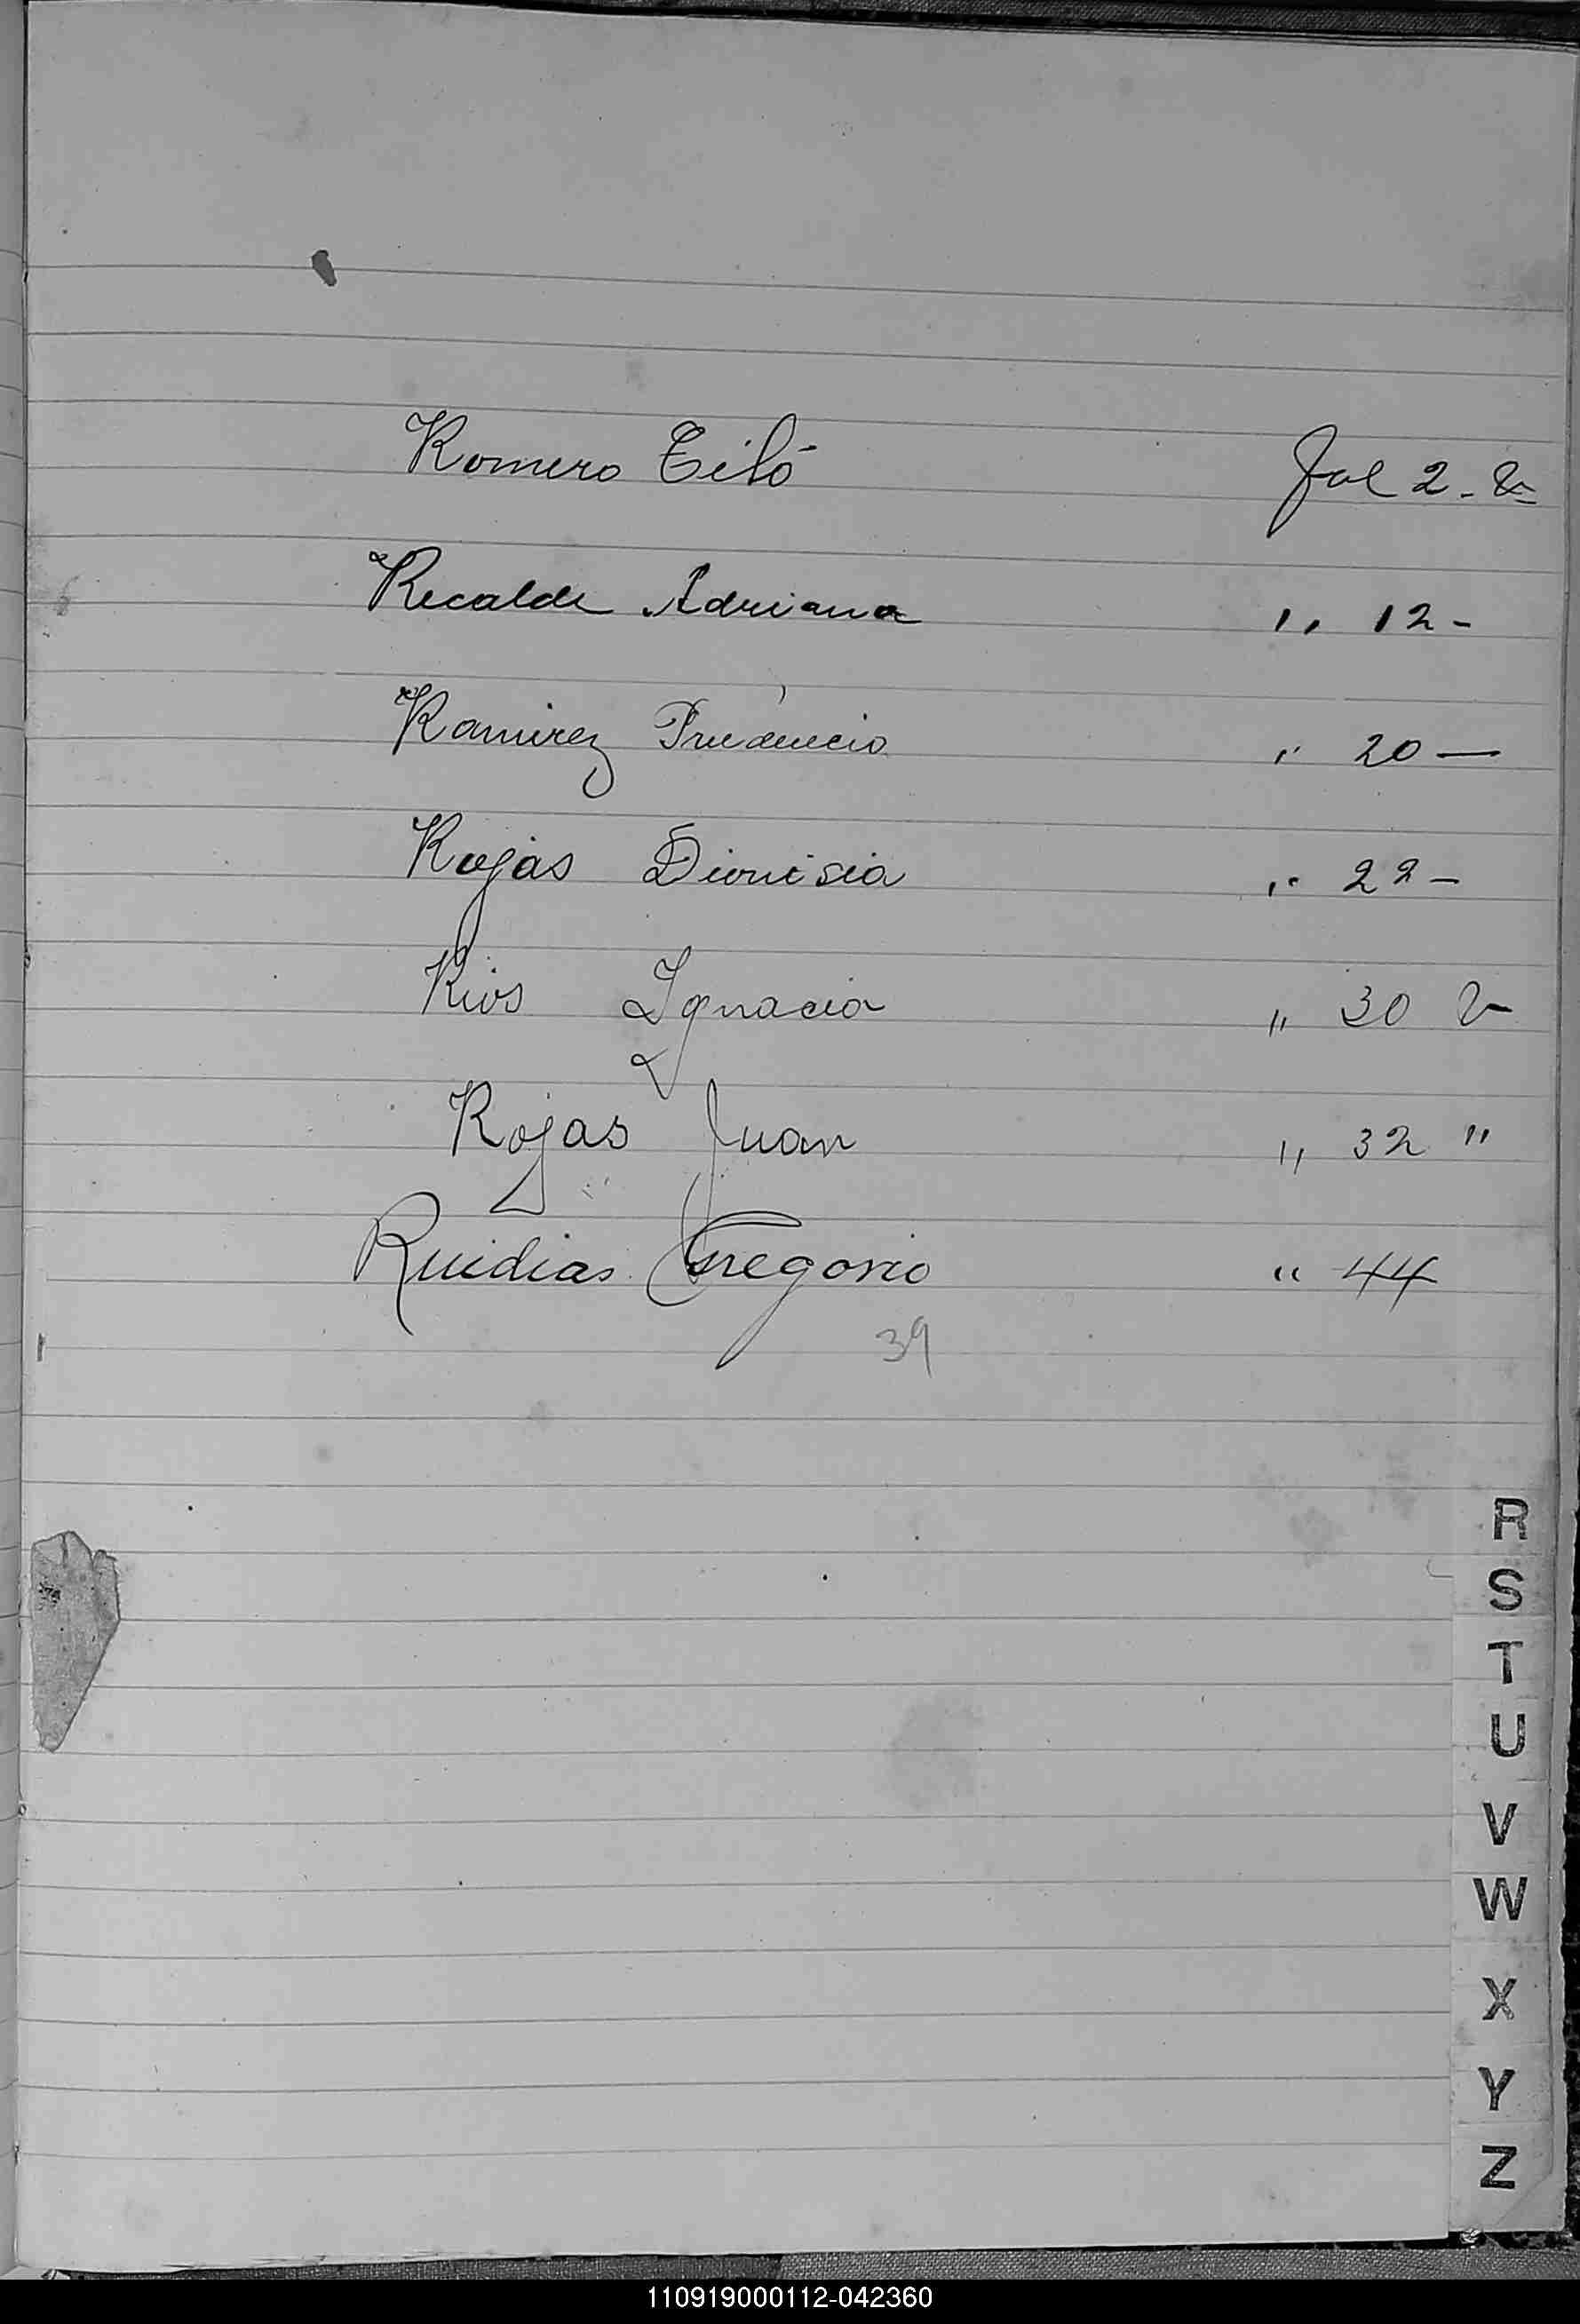 Romero Tiló Fol 2. v
Recalde Adriana ,, 12 -
Ramirez Prudencio ,, 20 —
Rojas Dionisia ,, 22 -
Rios Ignacia ,, 30 v
Rojas Juan ,, 32 "
Ruidias Gregorio " 44
39
R
S
T
U
V
W
X
Y
Z
110919000112-042360